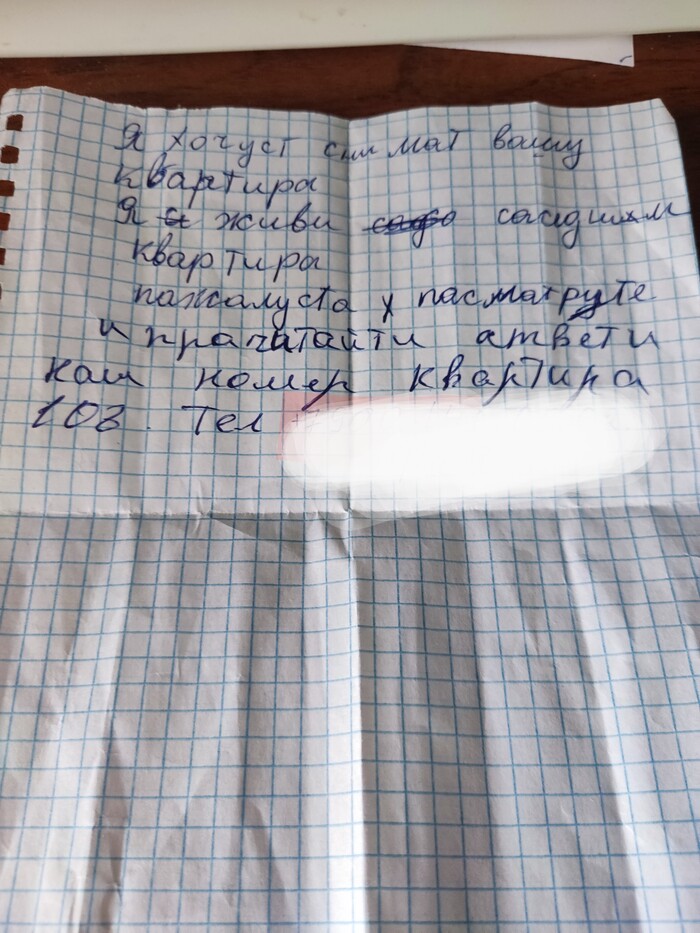 Я хочуст снимат вашу
квартира
Я живи соседниям
квартира
пажалуста х пасматруте
и прачатайти атвети
Наш номер квартира
103. Тел